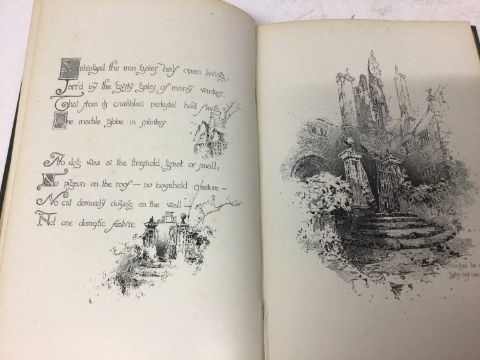 Unhinged the iron gates half open hung,
Jarr'd by the gusty gales of many winters,
That from its crumbled pedestal had flung
One marble globe in splinters.
No dog was at the threshold, great or small;
No pigeon on the roof — no household creature —
No cat demurely dozing on the wall —
Not one domestic feature.